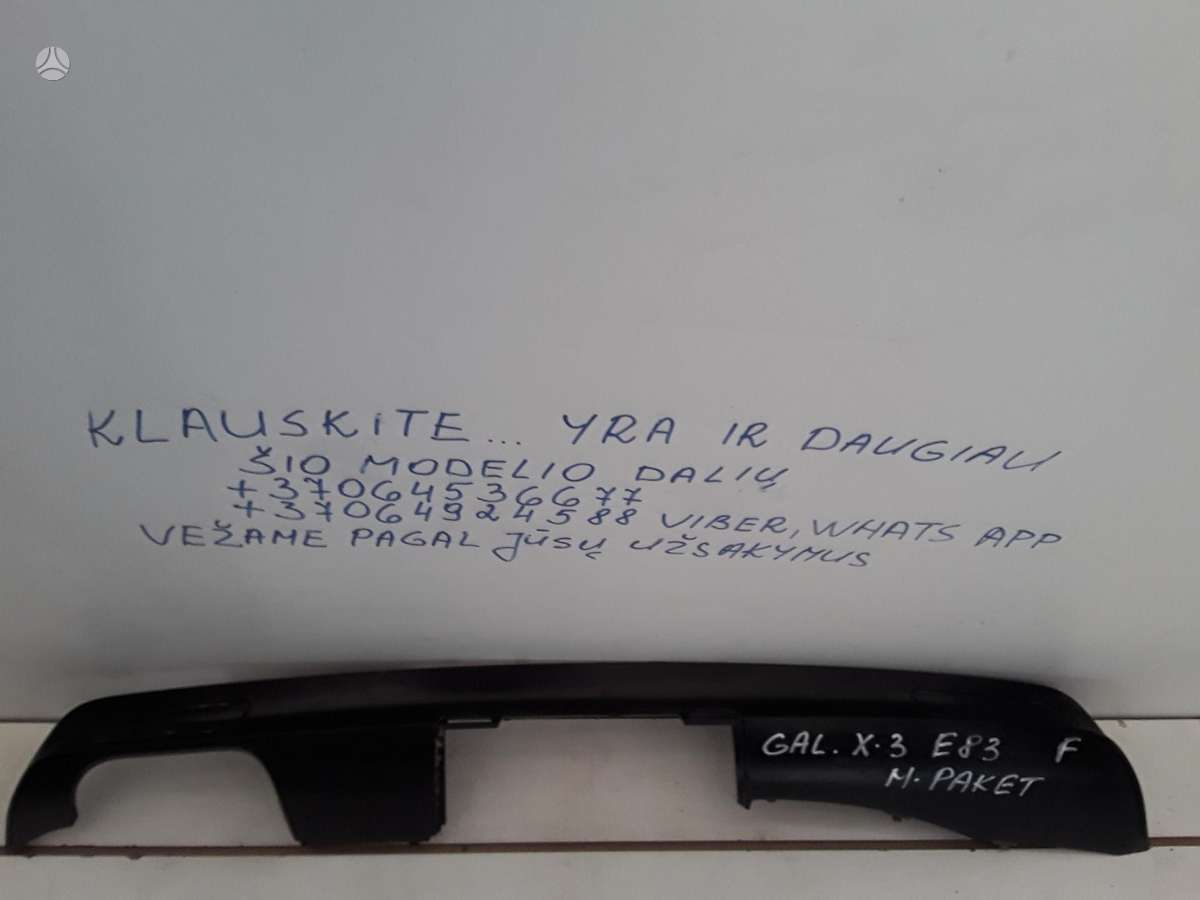 KLAUSKITE... YRA IR DAUGIAU
ŠIO MODELIO DALIŲ
+37064536677
+37064924588 VIBER, WHATS APP
VEŽAME PAGAL JŪSŲ UŽSAKYMUS
GAL. X.3 E83 F
M.PAKET